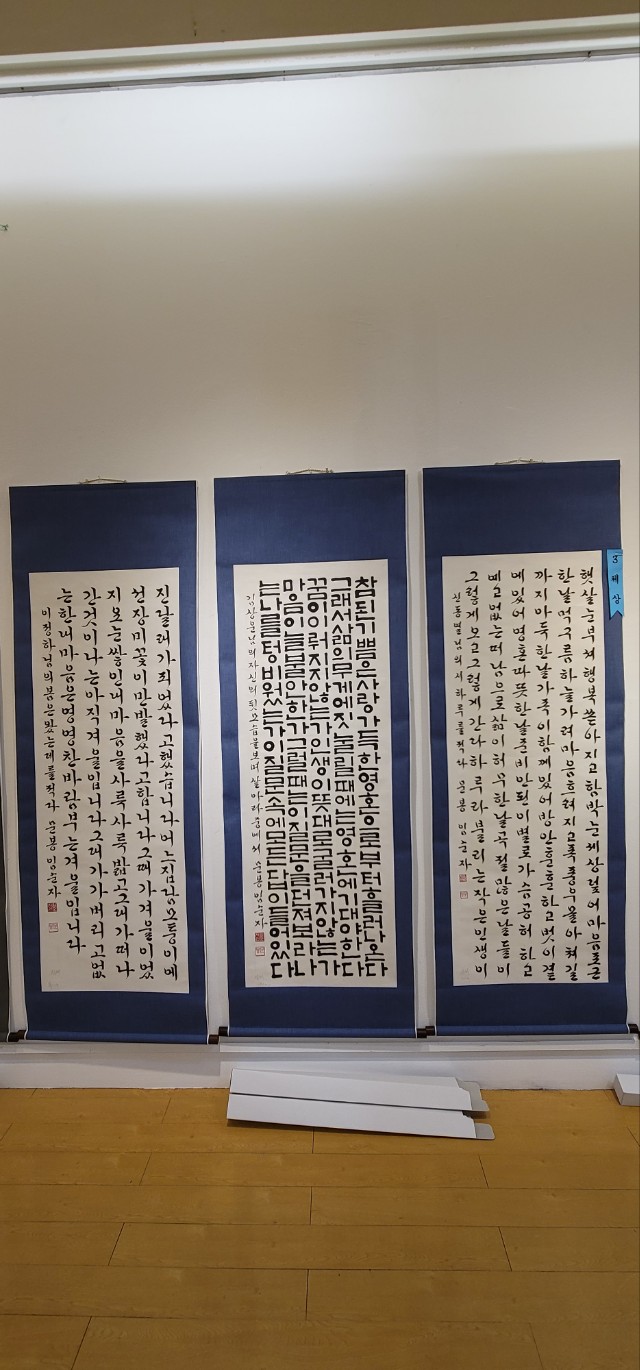 진달래가피었다고했습니다어느집담모퉁이에
선장미꽃이만발했다고합니다그때가겨울이었
지요눈쌓인내마음을사륵사륵밟고그대가떠나
간것이나는아직겨울입니다그대가가버리고없
는한내마음은영영찬바람부는겨울입니다
이정하님의봄은왔는데를적다 문봉 임순자
참된기쁨은사랑가득한영혼으로부터흘러나온다
그래서삶의무게에짓눌릴때에는영혼에기대야한다
꿈이이뤄지지않는가인생이뜻대로굴러가지않는가
마음이늘불안하는가그럴때는이질문을던져보라나
는나를텅비웠는가이질문속에모든답이들어있다
김상운님의자신의뒷모습을보며살아라중에서 문봉임순자
3체상
햇살눈부셔행복쏟아지고함박눈세상덮어마음포근
한날먹구름하늘가려마음흐려지고폭풍우몰아쳐길
까지마득한날가족이함께있어방안훈훈하고벗이곁
에있어영혼따뜻한날준비안된이별로가슴공허하고
예고없는떠남으로삶이허무한날곡절많은날들이
그렇게오고그렇게간다하루라불리는작은인생이
신동열님의시하루를적다 문봉 임순자